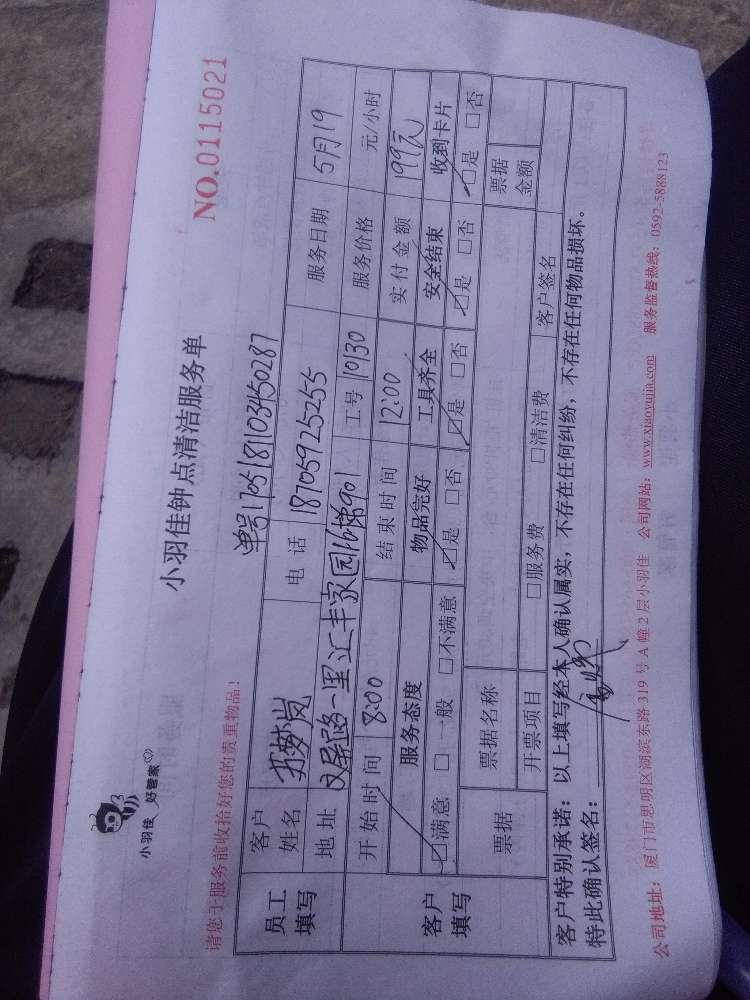 小羽佳 好管家
小羽佳钟点清洁服务单
NO.0115021
请您于服务前收拾好您的贵重物品!
单号1705181103450287
员工填写 客户姓名 梦岚 电话 18705925255 服务日期 5月19
地址 一里汇丰家园 901 工号 10130 服务价格 元/小时
客户填写 开始时间 8:00 结束时间 12:00 实付金额 199元
服务态度 物品完好 工具齐全 安全结束 收到卡片
☑满意 □一般 □不满意 ☑是 □否 ☑是 □否 ☑是 □否 ☑是 □否
票据 票据名称 票据金额
开票项目 □服务费 □清洁费 客户签名
客户特别承诺:以上填写经本人确认属实,不存在任何纠纷,不存在任何物品损坏。
特此确认签名:
公司地址:厦门市思明区湖滨东路 319 号 A 幢 2 层小羽佳 公司网站:www.xiaoyujia.com 服务监督热线:0592-5888123